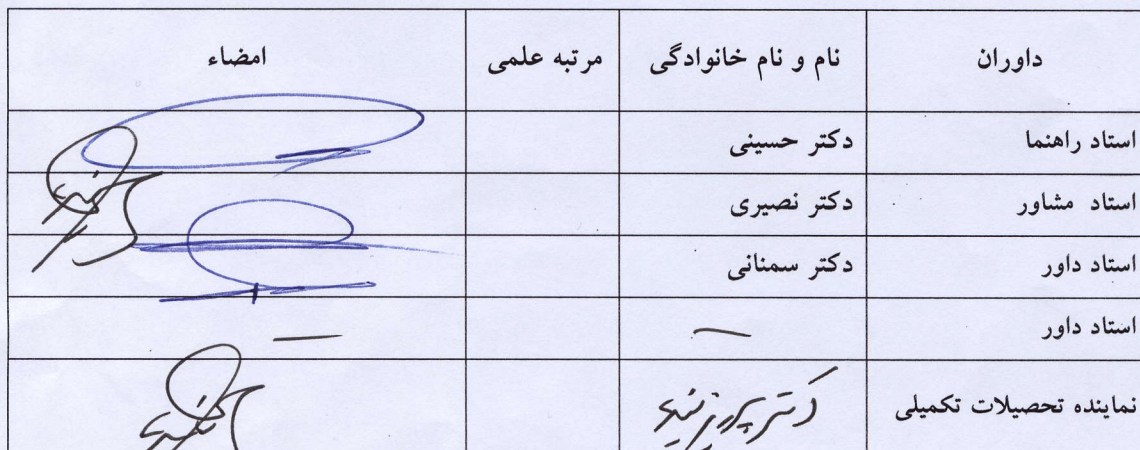 داوران نام و نام خانوادگی مرتبه علمی امضاء
استاد راهنما دکتر حسینی
استاد مشاور دکتر نصیری
استاد داور دکتر سمنانی
استاد داور —  —
نماینده تحصیلات تکمیلی دکتر